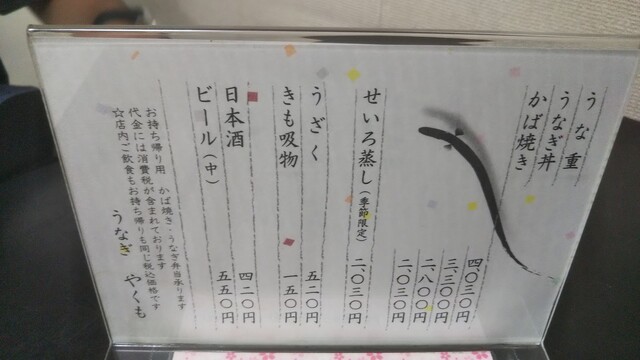 うな重
うなぎ丼
かば焼き
四、〇三〇円
三、三〇〇円
二、八〇〇円
二、〇三〇円
せいろ蒸し(季節限定) 二、〇三〇円
うざく 五二〇円
きも吸物 一五〇円
日本酒 四二〇円
ビール(中) 五五〇円
お持ち帰り用 かば焼き・うなぎ弁当承ります
代金には消費税が含まれております
☆店内ご飲食もお持ち帰りも同じ税込価格です
うなぎ やくも